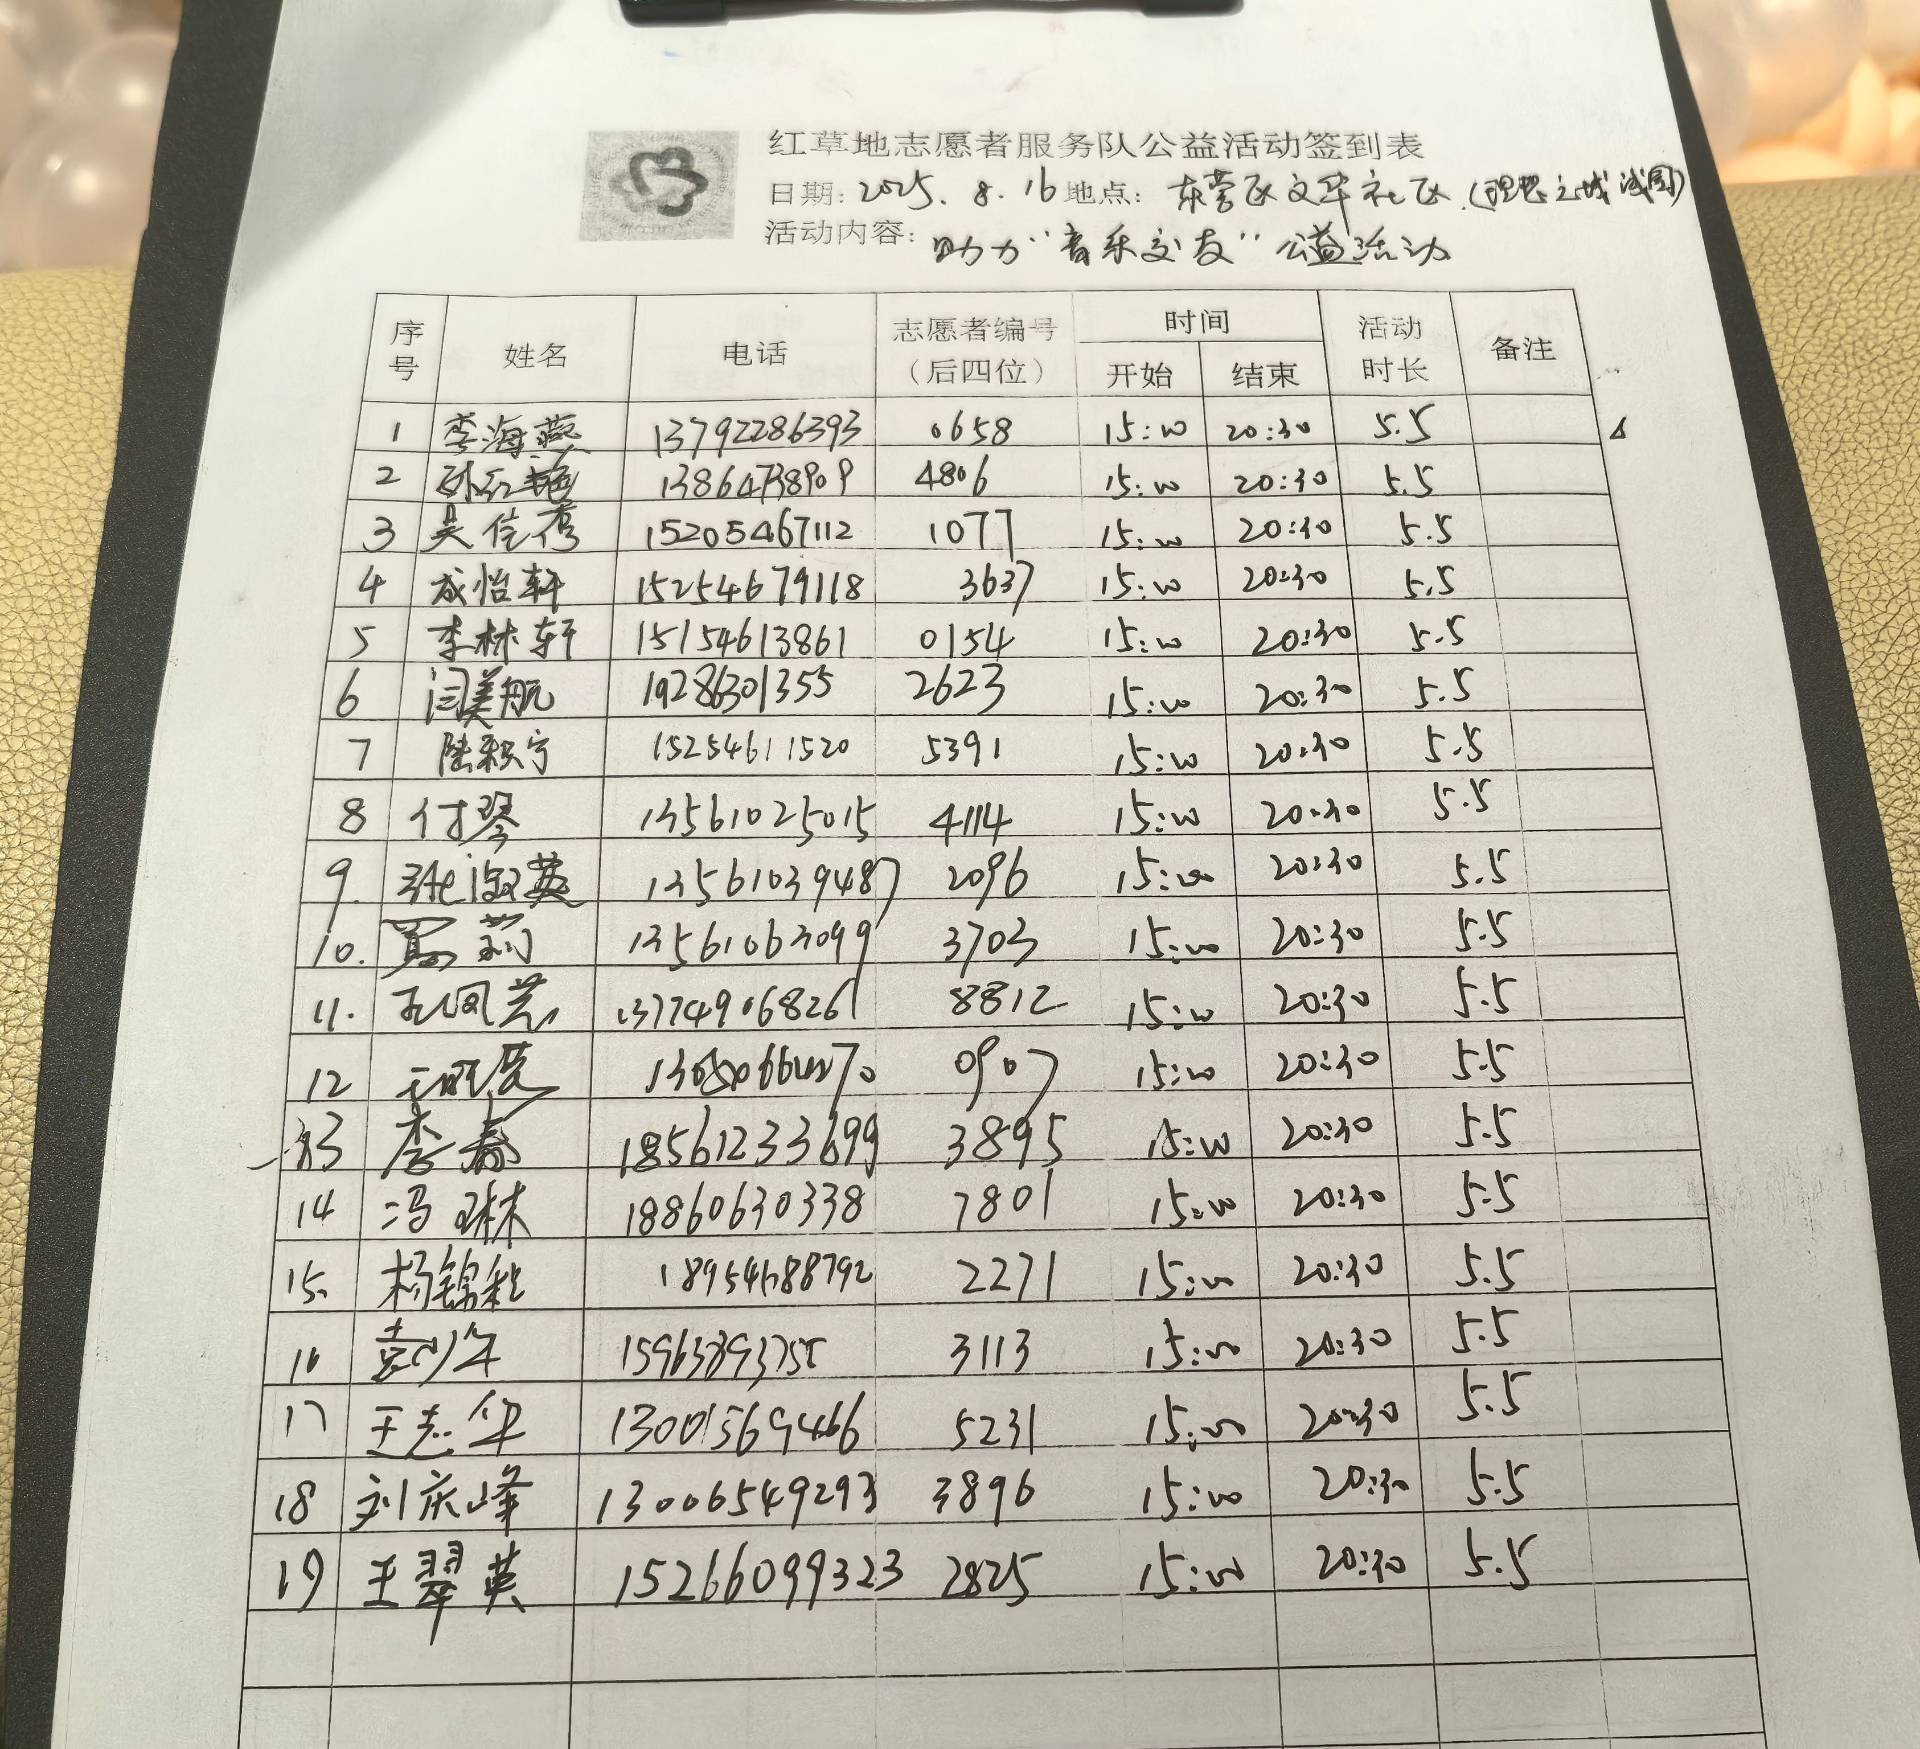 红草地志愿者服务队公益活动签到表
日期: 2025. 8. 16 地点: 东营区文华社区 (理想之城浅图)
活动内容: 助力"音乐交友"公益活动
序号 姓名 电话 志愿者编号(后四位) 时间 开始 结束 活动时长 备注
1 李海燕 13792286393 0658 15:00 20:30 5.5
2 孙红艳 13864738909 4806 15:00 20:30 5.5
3 吴信秀 15205467112 1077 15:00 20:30 5.5
4 成怡轩 15254679118 3637 15:00 20:30 5.5
5 李林轩 15154613861 0154 15:00 20:30 5.5
6 闫美航 19286301355 2623 15:00 20:30 5.5
7 陆积宁 15254611520 5391 15:00 20:30 5.5
8 付琴 13561025015 4114 15:00 20:30 5.5
9. 张淑英 13561039487 2096 15:00 20:30 5.5
10. 莉 13561063099 3703 15:00 20:30 5.5
11. 孔凤芝 13774906826 8812 15:00 20:30 5.5
12 王 0907 15:00 20:30 5.5
13 李春 18561233699 3895 15:00 20:30 5.5
14 冯琳 18860630338 7801 15:00 20:30 5.5
15. 杨锦 18954688792 2271 15:00 20:30 5.5
16 3113 15:00 20:30 5.5
17 王志华 13001569466 5231 15:00 20:30 5.5
18 刘庆峰 13006549293 3896 15:00 20:30 5.5
19 王翠英 15266099323 2825 15:00 20:30 5.5